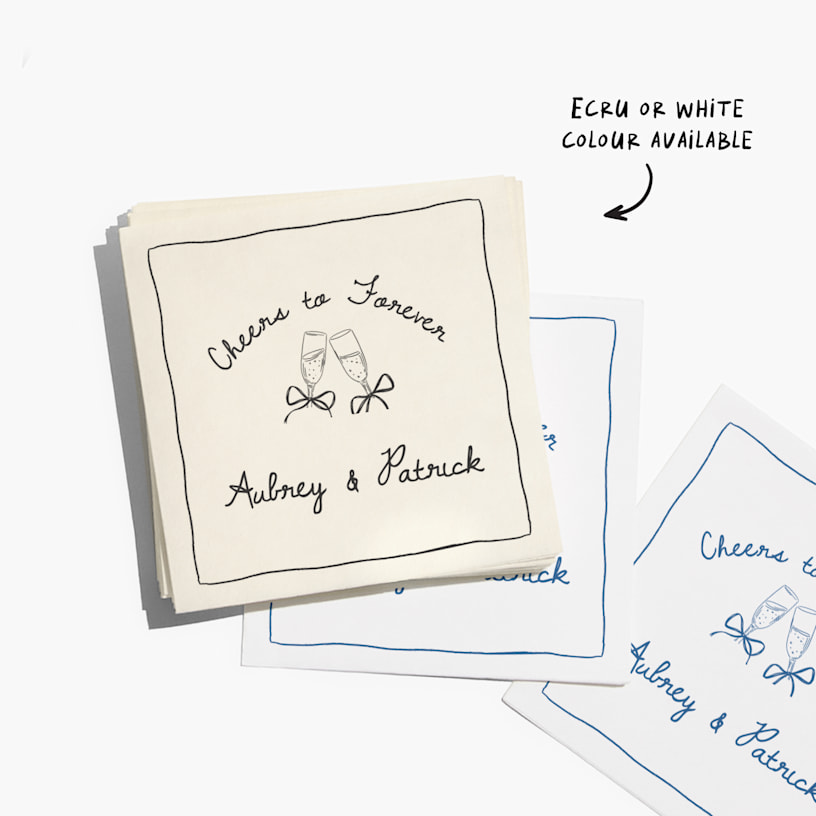 ECRU OR WHITE
COLOUR AVAILABLE
Cheers to Forever
Aubrey & Patrick
Cheers to
Aubrey & Patrick